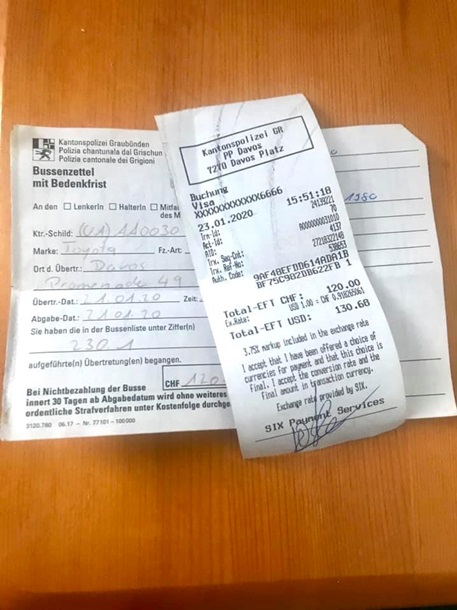 Kantonspolizei Graubünden
Polizia chantunala dal Grischun
Polizia cantonale dei Grigioni
Bussenzettel
mit Bedenkfrist
An den LenkerIn HalterIn
des M
Ktr.-Schild: (UA) AA0030
Marke: Toyota Fz.-Art:
Ort d. Übertr.: Davos
Promenade 49
Übertr.-Dat.: Zeit:
Abgabe-Dat.:
Sie haben die in der Bussenliste unter Ziffer(n)
230.1
aufgeführte(n) Übertretung(en) begangen.
CHF 120
Bei Nichtbezahlung der Busse
innert 30 Tagen ab Abgabedatum wird ohne weiteres
ordentliche Strafverfahren unter Kostenfolge durchge
3120.780 06.17 – Nr. 77101 – 100 000
1980
Kantonspolizei GR
PP Davos
7270 Davos Platz
Buchung
Visa
XXXXXXXXXXXX6666
23.01.2020 15:51:18
Trm-Id: 24139221
Act-Id: 70
AID: A0000000031010
Trx. Seq-Cnt: 4137
Trx. Ref-No: 27218322149
Auth. Code: 538653
9AF48EFDD614ADA1B
BF75C9822DB622FB 1
Total-EFT CHF: 120.00
Ex.Rate: USD 1.00 = CHF 0.918265061
Total-EFT USD: 130.68
3.75% markup included in the exchange rate
I accept that I have been offered a choice of
currencies for payment and that this choice is
final. I accept the conversion rate and the
final amount in transaction currency.
Exchange rate provided by SIX.
SIX Payment Services